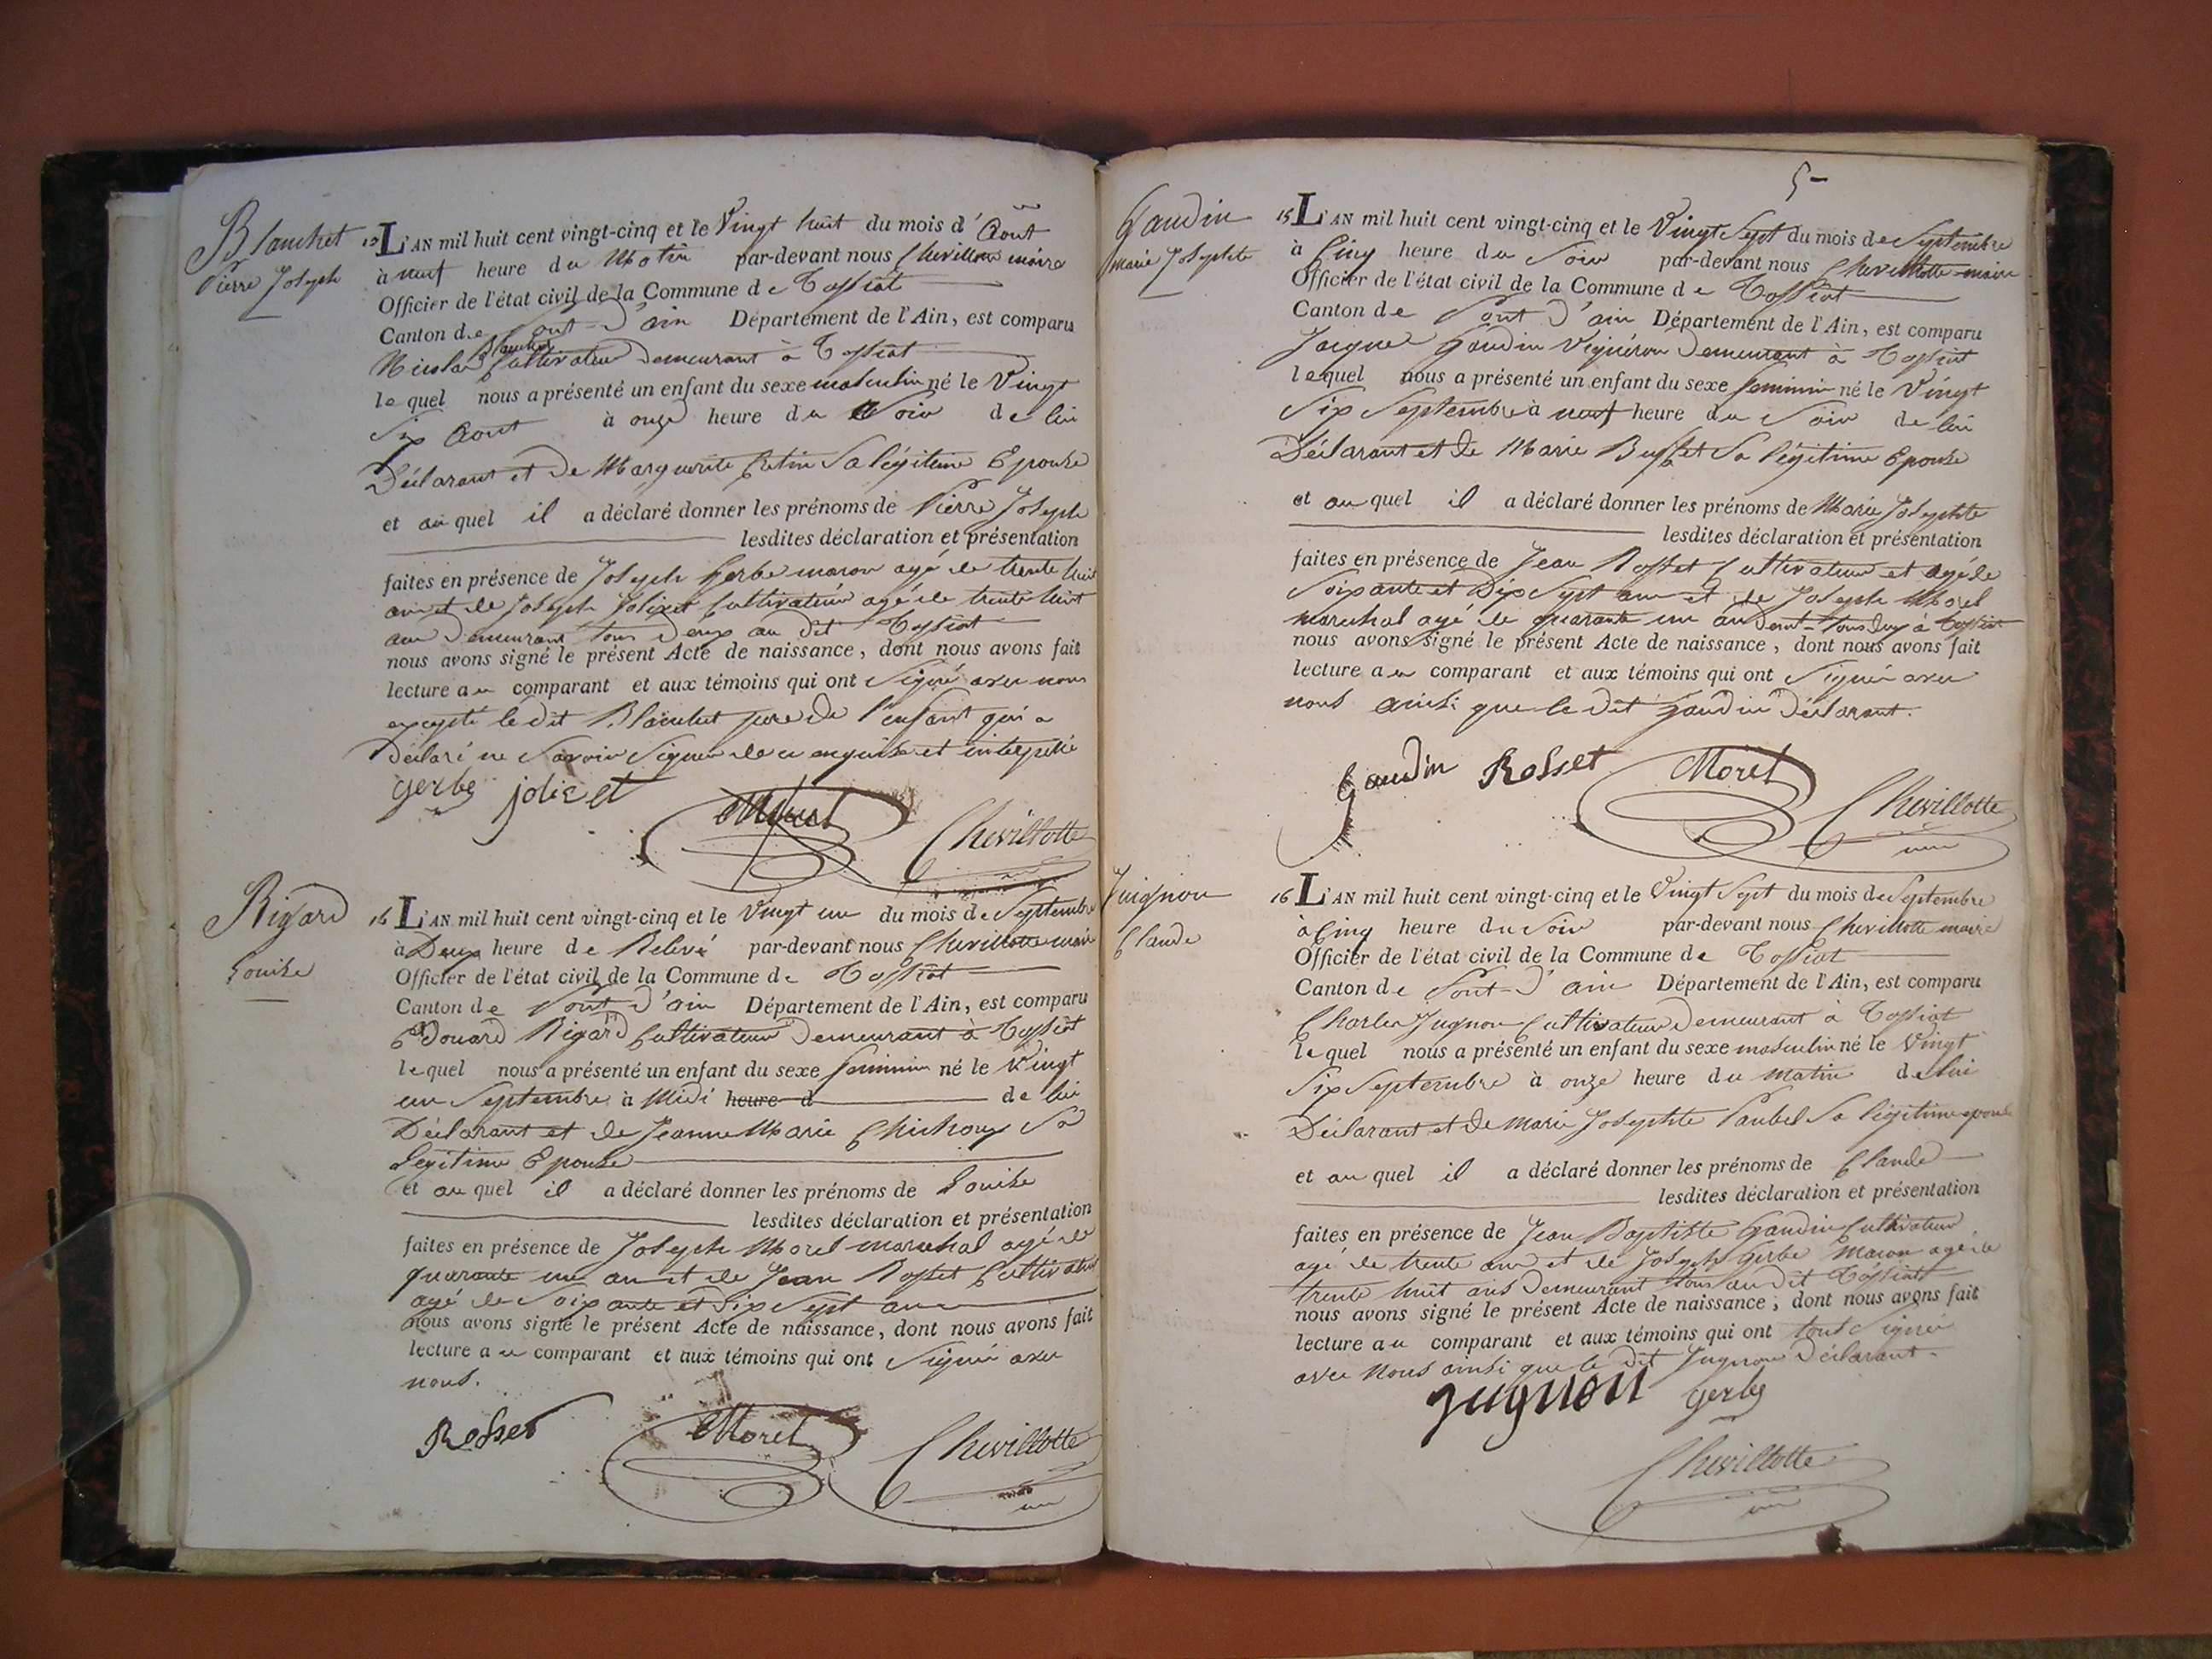 Blanchet
Pierre Joseph
L'AN mil huit cent vingt-cinq et le Vingt huit du mois d'Aout
à neuf heure du Matin par-devant nous Chevillotte maire
Officier de l'état civil de la Commune de Tossiat
Canton de Pont-d'ain Département de l'Ain, est comparu
Nicolas Blanchet Cultivateur demeurant à Tossiat
lequel nous a présenté un enfant du sexe masculin né le Vingt
Six Aout à onze heure du Soir de lui
Déclarant et de Marguerite Sa légitime Epouse
et auquel il a déclaré donner les prénoms de Pierre Joseph
lesdites déclaration et présentation
faites en présence de Joseph Gerbe macon agé de trente huit
ans et de Joseph Joliet Cultivateur agé de trente huit
ans demeurant tous deux au dit Tossiat
nous avons signé le présent Acte de naissance, dont nous avons fait
lecture au comparant et aux témoins qui ont Signé avec nous
excepté le dit Blanchet pere de l'enfant qui a
Déclaré ne Savoir Signer de ce enquis et interpellé
Gerbe joliet
Morel
Chevillotte
Rigard
Louise
L'AN mil huit cent vingt-cinq et le Vingt un du mois de Septembre
à Deux heure de Relevé par-devant nous Chevillotte maire
Officier de l'état civil de la Commune de Tossiat
Canton de Pont-d'ain Département de l'Ain, est comparu
Edouard Rigard Cultivateur Demeurant à Tossiat
lequel nous a présenté un enfant du sexe feminin né le Vingt
un Septembre à Midi heure d de lui
Déclarant et de Jeanne Marie Sa
legitime Epouse
et auquel il a déclaré donner les prénoms de Louise
lesdites déclaration et présentation
faites en présence de Joseph Morel marechal agé de
quarante un an et de Jean Rosset Cultivateur
agé de Soixante et Dix Sept ans
nous avons signé le présent Acte de naissance, dont nous avons fait
lecture au comparant et aux témoins qui ont Signé avec
nous.
Rosset Morel Chevillotte
5
Gaudin
marie Josephte
15 L'AN mil huit cent vingt-cinq et le Vingt Sept du mois de Septembre
à Cinq heure du Soir par-devant nous Chevillotte maire
Officier de l'état civil de la Commune de Tossiat
Canton de Pont d'ain Département de l'Ain, est comparu
Jacque Gaudin Vigneron Demeurant à Tossiat
lequel nous a présenté un enfant du sexe feminin né le Vingt
Six Septembre à neuf heure du Soir de lui
Déclarant et de Marie Buffet Sa légitime Epouse
et auquel il a déclaré donner les prénoms de Marie Josephte
lesdites déclaration et présentation
faites en présence de Jean Rosset Cultivateur et agé de
Soixante et Dix Sept ans et de Joseph Morel
marechal agé de quarante un an demt tous deux à Tossiat
nous avons signé le présent Acte de naissance, dont nous avons fait
lecture au comparant et aux témoins qui ont Signé avec
nous ainsi que le dit Gaudin Déclarant.
Gaudin Rosset Morel
Chevillotte
Juignon
Claude
16 L'AN mil huit cent vingt-cinq et le Vingt Sept du mois de Septembre
à Cinq heure du Soir par-devant nous Chevillotte maire
Officier de l'état civil de la Commune de Tossiat
Canton de Pont-d'ain Département de l'Ain, est comparu
Charles Jugnon Cultivateur Demeurant à Tossiat
lequel nous a présenté un enfant du sexe masculin né le Vingt
Six Septembre à onze heure du matin de lui
Déclarant et de Marie Josephte Paubel Sa légitime epouse
et auquel il a déclaré donner les prénoms de Claude
lesdites déclaration et présentation
faites en présence de Jean Baptiste Gaudin Cultivateur
agé de trente ans et de Joseph Gerbe Macon agé de
trente huit ans Demeurant tous au dit Tossiat
nous avons signé le présent Acte de naissance, dont nous avons fait
lecture au comparant et aux témoins qui ont tous Signé
avec nous ainsi que le dit Jugnon Déclarant.
jugnon Gerbe
Chevillotte